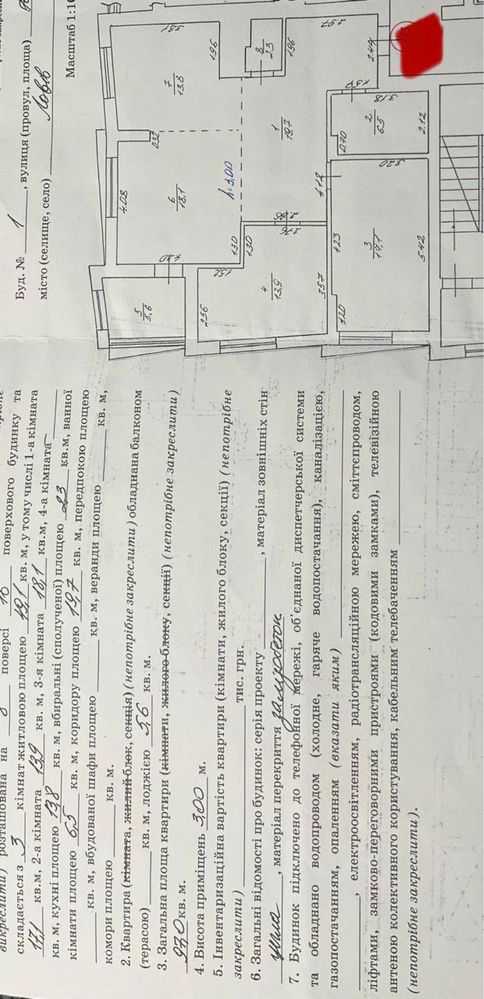 Буд. № 1 , вулиця (провул, площа)
місто (селище, село) Львів
Масштаб 1:10
викреслити) розташована на 8 поверсі 10 поверхового будинку та
складається з 3 кімнат житловою площею кв. м, у тому числі 1-а кімната
кв.м, 2-а кімната 13,9 кв. м, 3-я кімната 18,1 кв.м, 4-а кімната
кв. м, кухні площею 13,8 кв. м, вбиральні (сполученої) площею 2,3 кв.м, ванної
кімнати площею 6,5 кв. м, коридору площею 19,7 кв. м, передпокою площею
кв. м, вбудованої шафи площею кв. м, веранди площею кв. м,
комори площею кв. м.
2. Квартира (кімната, жилий блок, секція) (непотрібне закреслити) обладнана балконом
(терасою) кв. м, лоджією 3,6 кв. м.
3. Загальна площа квартири (кімнати, жилого блоку, секції) (непотрібне закреслити)
97,0 кв. м.
4. Висота приміщень 3,00 м.
5. Інвентаризаційна вартість квартири (кімнати, жилого блоку, секції) (непотрібне
закреслити) тис. грн.
6. Загальні відомості про будинок: серія проекту , матеріал зовнішніх стін
цегла , матеріал перекриття залізобетон
7. Будинок підключено до телефонної мережі, об'єднаної диспетчерської системи
та обладнано водопроводом (холодне, гаряче водопостачання), каналізацією,
газопостачанням, опаленням (вказати яким)
, електроосвітленням, радіотрансляційною мережею, сміттєпроводом,
ліфтами, замково-переговорними пристроями (кодовими замками), телевізійною
антеною колективного користування, кабельним телебаченням
(непотрібне закреслити).
7
13,6
8
2,3
6
18,1
h=3,00
1
19,7
2
6,5
5
3,6
4
13,9
3
19,1
4.08
2.36
3.57
4.23
3.20
5.42
2.12
3.18
1.30
1.30
1.96
1.96